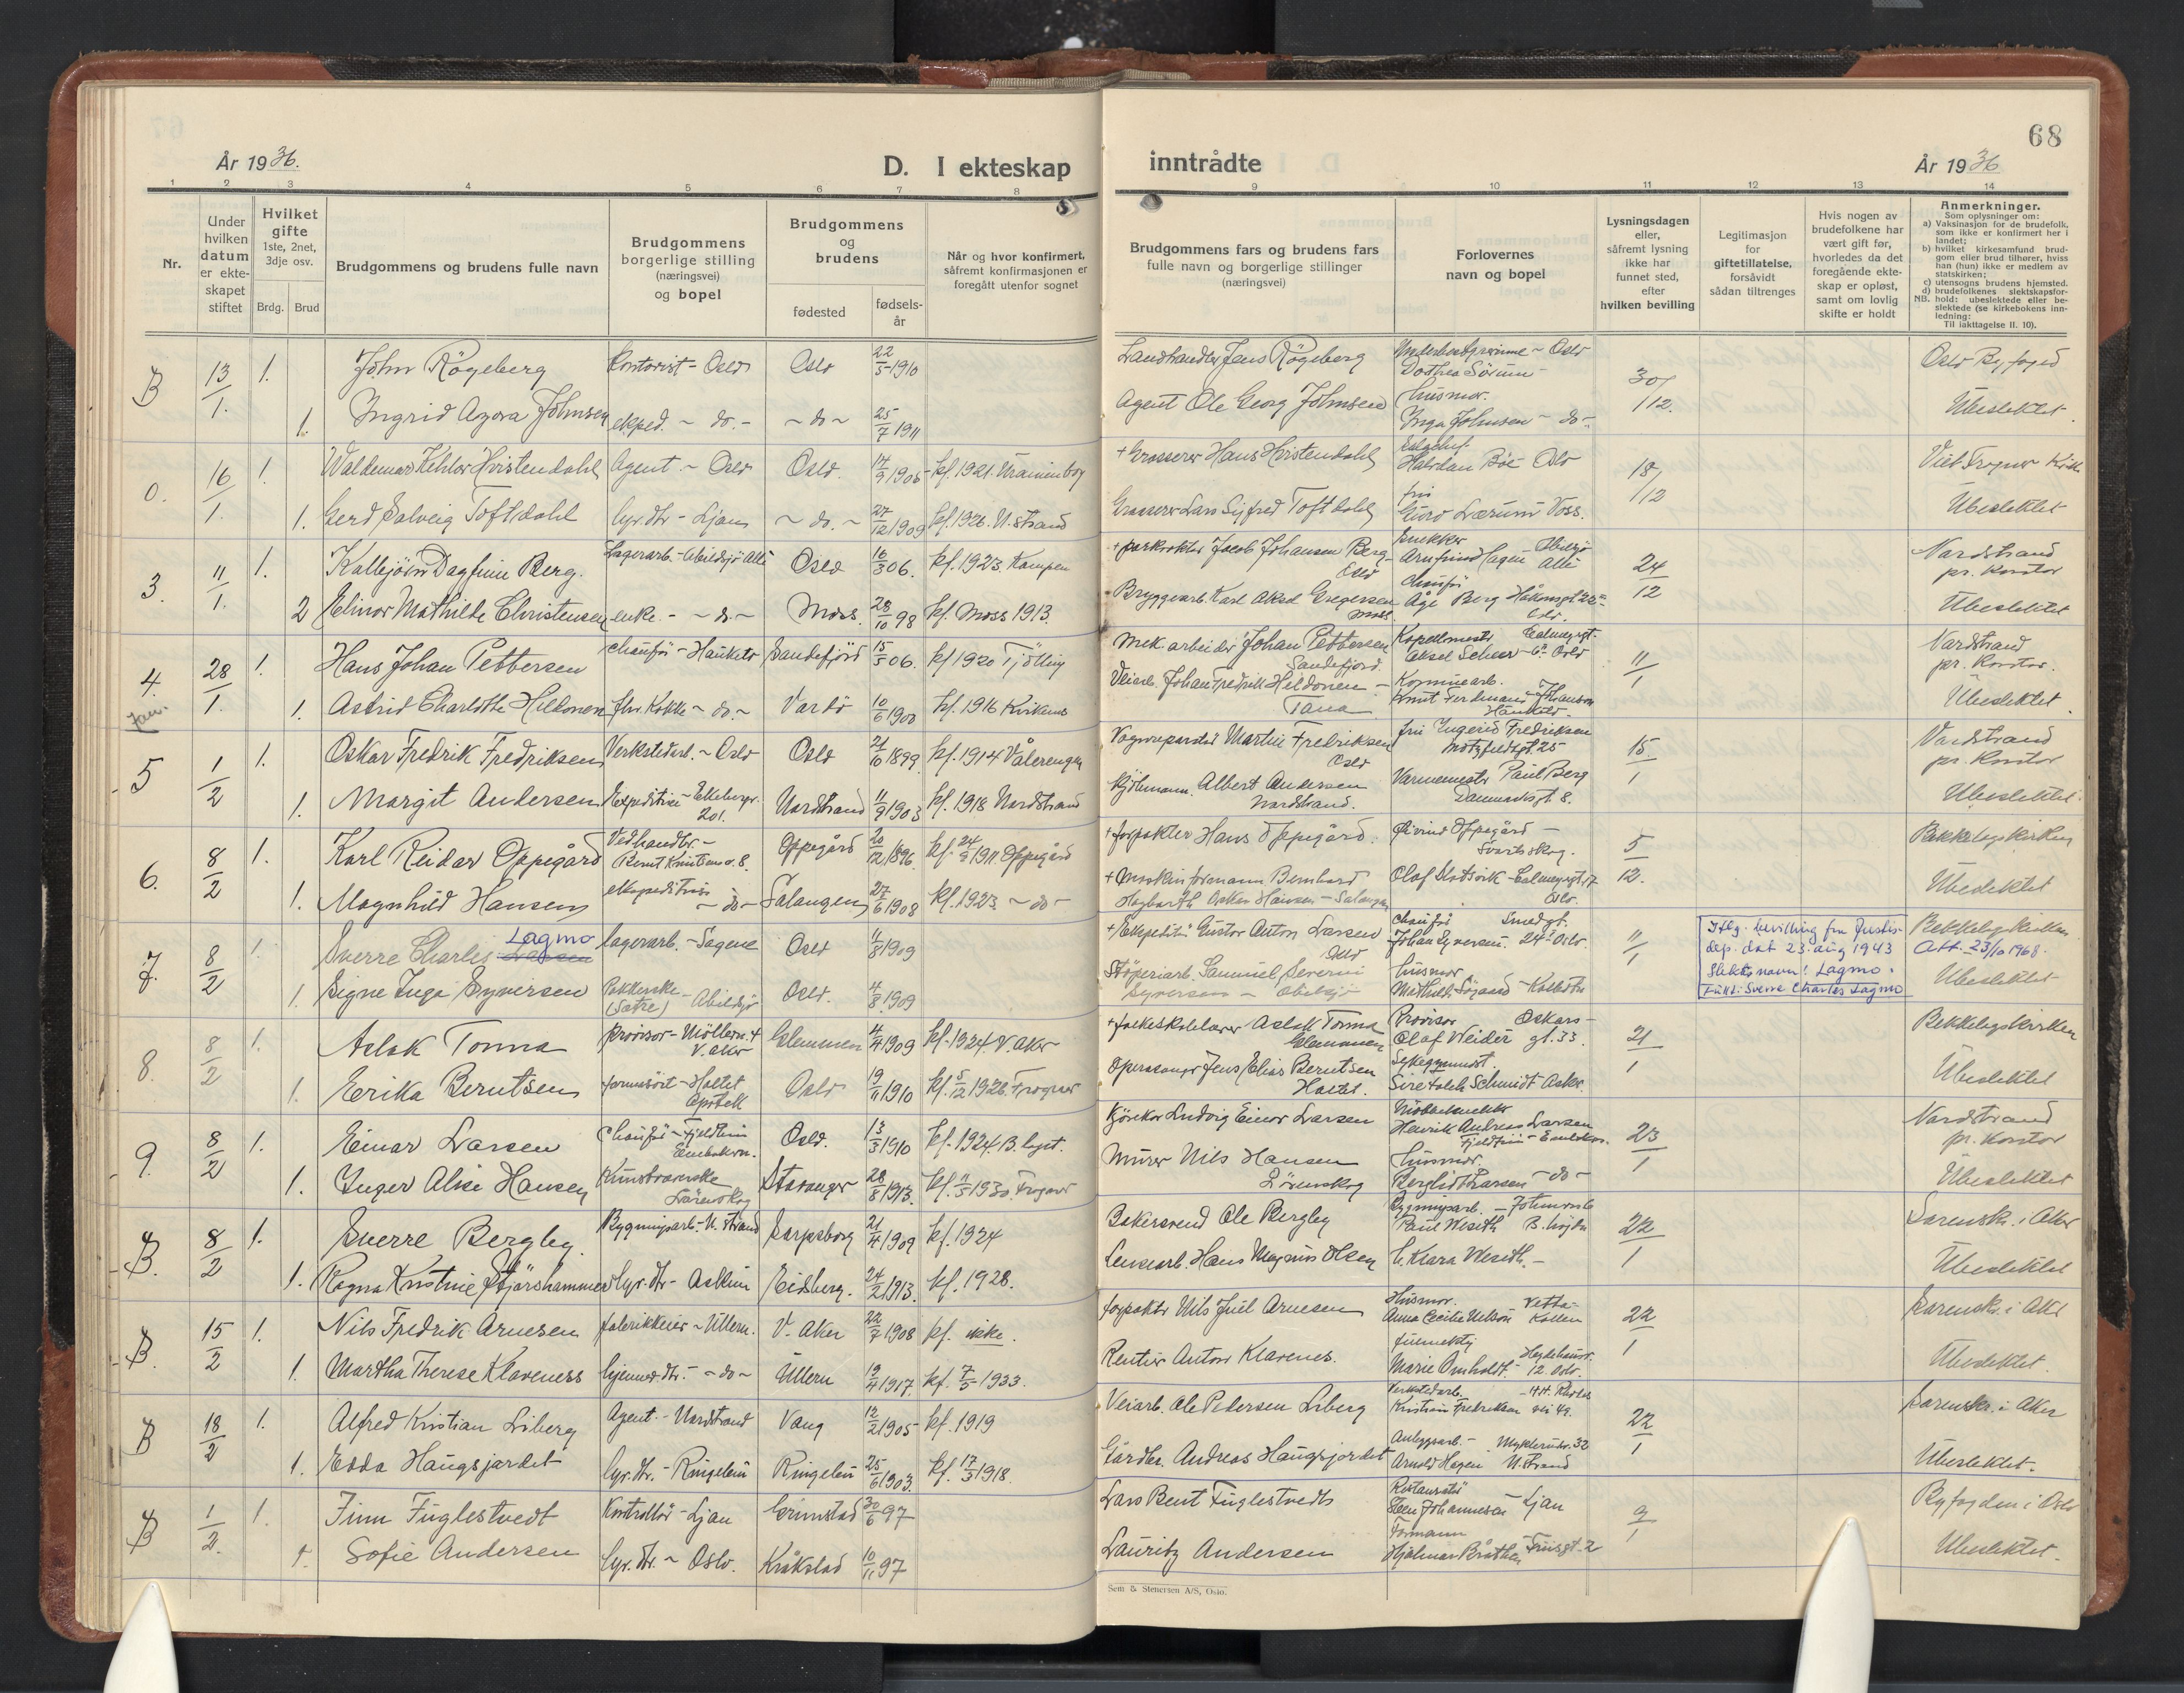 År 1936.
D. I ekteskap
inntrådte
68
År 1936
1 2 3 4 5 6 7 8 9 10 11 12 13 14
Nr.
Under hvilken datum er ekteskapet stiftet
Hvilket gifte 1ste, 2net, 3dje osv.
Brdg. Brud
Brudgommens og brudens fulle navn
Brudgommens borgerlige stilling (næringsvei) og bopel
Brudgommens og brudens
fødested
fødsels-år
Når og hvor konfirmert, såfremt konfirmasjonen er foregått utenfor sognet
Brudgommens fars og brudens fars fulle navn og borgerlige stillinger (næringsvei)
Forlovernes navn og bopel
Lysningsdagen eller, såfremt lysning ikke har funnet sted, efter hvilken bevilling
Legitimasjon for giftetillatelse, forsåvidt sådan tiltrenges
Hvis nogen av brudefolkene har vært gift før, hvorledes da det foregående ekteskap er opløst, samt om lovlig skifte er holdt
Anmerkninger.
Som oplysninger om:
a) Vaksinasjon for de brudefolk, som ikke er konfirmert her i landet;
b) hvilket kirkesamfund brudgom eller brud tilhører, hviss han (hun) ikke er medlem av statskirken;
c) utensogns brudens hjemsted.
d) brudefolkenes slektskapsforhold: ubeslektede eller beslektede (se kirkebokens innledning:
NB. Til iakttagelse II. 10).
B 13/1. 1. John Rögeberg Kontorist - Oslo Oslo 22/5 1910 Landhandler Jens Rögeberg Dorthea Sörum 30/12. Oslo Byfoged
1. Ingrid Agora Johnsen eksped. ~ do. - ~ do ~ 25/7 1911 Agent Ole Georg Johnsen Husmor. Inga Johnsen ~ do - Ubeslektet.
0. 16/1. 1. Waldemar Kehler Hvistendahl Agent. ~ Oslo Oslo. 14/9 1906 kf. 1921. Uranienborg + Grosserer Hans Hvistendahl Halvdan Böe Oslo 18/12 Viet Frogner Kirke
1. Gerd Solveig Toftdahl hjv. dtr - Ljan ~ do. ~ 27/12 1909 kf. 1926. N. strand Grosserer Lars Sigfred Toftdahl fru Guro Lærum Voss. Ubeslektet
3. 11/1. 1. Kallbjörn Dagfinn Berg. Lagerarb. - Abildsjö Allé Oslo 16/3 06. kf. 1923. Kampen + parkvokter Jacob Johansen Berg - Oslo Snekker Arnfinn Hagen Abildsjö Allé 24/12 Nordstrand pr. Kontor
2 Elinor Mathilde Christensen enke. - ~ do. ~ Moss. 28/10 98 kf. Moss 1913. Bryggearb. Karl Aksel Gregersen Moss Chauför Åge Berg Håkonsgt 25 Oslo. Ubeslektet
4. 28/1. 1. Hans Johan Pettersen Chauför - Hauketo Sandefjord 15/5 06. kf 1920 Tjölling Mek. arbeider Johan Pettersen Sandefjord. Kapellmestr. Aksel Scheer - Calmeyergt. 6a Oslo 11/1 Nordstrand pr. Kontor.
Jan. 1. Astrid Charlotte Heldonen fhv. Kokke ~ do. ~ Vardö 10/6 1900 kf. 1916 Kvikne Veiarb. Johan Fredrik Heldonen - Tana Kommunearb. Knut Ferdinand Johansen Hauketo. Ubeslektet.
5 1/2 1. Oskar Fredrik Fredriksen Verkstedarb. ~ Oslo Oslo 21/10 1899. kf. 1914 Vålerengen Vognreparatör Martin Fredriksen Oslo fru Ingerid Fredriksen Motzfeldtsgt. 25 15/1 Nordstrand pr. Kontor
1. Margit Andersen Expeditrise - Ekebergv. 201. Nordstrand 11/9 1903 kf. 1918 Nordstrand Kjölemann. Albert Andersen Nordstrand. Varmemestr. Paul Berg Danmarksgt. 8. Ubeslektet.
6. 8/2 1. Karl Reidar Oppegård Vedhandler. - Bernt Knudsens v. 8. Oppegård 20/12 1896. kf. 24/9 1911. Oppegård + forpakter Hans Oppegård. Øivind Oppegård - Svartskog. 5/12. Bekkelagskirken
1. Magnhild Hansen ekspeditrise ~ do - Salangen 27/6 1908 kf. 1923 ~ do - + Maskinformann Bernhard Hagbarth Oskar Hansen - Salangen Olaf Slotsvik - Calmeyergt. 17 Oslo. Ubeslektet
7. 8/2 1. Sverre Charles Larsen Lagmo lagerarb. - Sagene Oslo 11/8 1909 + Ekspeditör Gustav Anton Larsen Oslo Chauför Johan Syversen. Smedgt. 24 Oslo. 11/1 Ifølg. bevilling fra Justisdep. dat 23. aug 1943 Slektsnavn: Lagmo. Fullt: Sverre Charles Lagmo Bekkelagskirken Att. 23/10 1968.
1. Signe Inga Syversen Pakkerske - (Sætre) Abildsjö Oslo. 4/8 1909 Støperiarb. Samuel Severin Syversen - Abildsjö Husmor. Mathilde Sögaard - Kolbotn Ubeslektet
8. 8/2 1. Aslak Tonna provisor - Möllerv. 4 V. Aker Glemmen 4/4 1909 kf. 1924. V. Aker + folkeskolelærer Aslak Tonna Glemmen Provisor Olaf Weider Oskarsgt. 33. 21/1 Bekkelagskirken
1. Erika Berntsen farmasöit - Holtet Apotek Oslo 19/11 1910 kf. 5/12 1926. Frogner Operasanger Jens Elias Berntsen Holtet. Sykegymnast. Siretoleh Schmidt Asker. Ubeslektet
9. 8/2 1. Einar Larsen Chauför ~ Fjeldheim Oslo. 13/3 1910 kf. 1924. B. laget. Kjörekar Ludvig Einar Larsen Möbelsnekker Henrik Andreas Larsen 23/1 Nordstrand pr. kontor
1. Inger Alise Hansen Kunstvæverske Lörenskog Stavanger 28/8 1913. kf. 11/5 1930. Frogner Murer Nils Hansen Lörenskog Husmor. Berglid Larsen - do - Ubeslektet
B. 8/2 1. Sverre Bergby. Bygningsarb. - N. strand Sarpsborg 21/4 1909 kf. 1924 Bakersvend Ole Bergby Bygningsarb. Paul Weseth 22/1 Sorenskr. i Aker
1. Ragna Kristine Stjörshammer hjv. dtr - Askim Eidsberg. 24/2 1913. kf. 1928. Lensearb. Hans Magnus Olsen Klara Weseth. - Ubeslektet
B. 15/2 1. Nils Fredrik Arnesen fabrikkeier ~ Ullern. V. Aker 22/7 1908 kf. ikke. forpakter Nils Juel Arnesen Husmor. Anna Cecilie Nelson Vettakollen 22/1 Sorenskr. i Aker
1. Martha Therese Klaveness hjemmev. dtr. - ~ do ~ Ullern 19/4 1917. kf. 7/5 1933. Rentier Anton Klavenes. Marie Omholdt. - Ubeslektet.
B 18/2 1. Alfred Kristian Liberg Agent. - Nordstrand Vang 12/2 1905 - kf. 1919 Veiarb. Ole Pedersen Liberg Verkstedarb. Kristian Fredriksen 22/1 Sorenskr. i Aker
1. Edda Haugsjordet hjv. dtr. - Ringebu Ringebu 25/6 1903. kf. 17/3 1918. Gårdbr. Andreas Haugsjordet Anleggsarb. - Arnold Hagen N. strand Ubeslektet.
B 1/2. 1. Finn Fuglestvedt Kontrollör - Ljan Grimstad 30/6 97 Lars Bent Fuglestvedt Restauratör Steen Johannesen Ljan 9/1 Byfogden i Oslo
1. Sofie Andersen hjv. dtr. ~ Oslo. Kråkstad 10/11 97 Lauritz Andersen Formann Hjalmar Bråthen Friisgt. 2 Ubeslektet.
Sem & Stenersen A/S, Oslo.